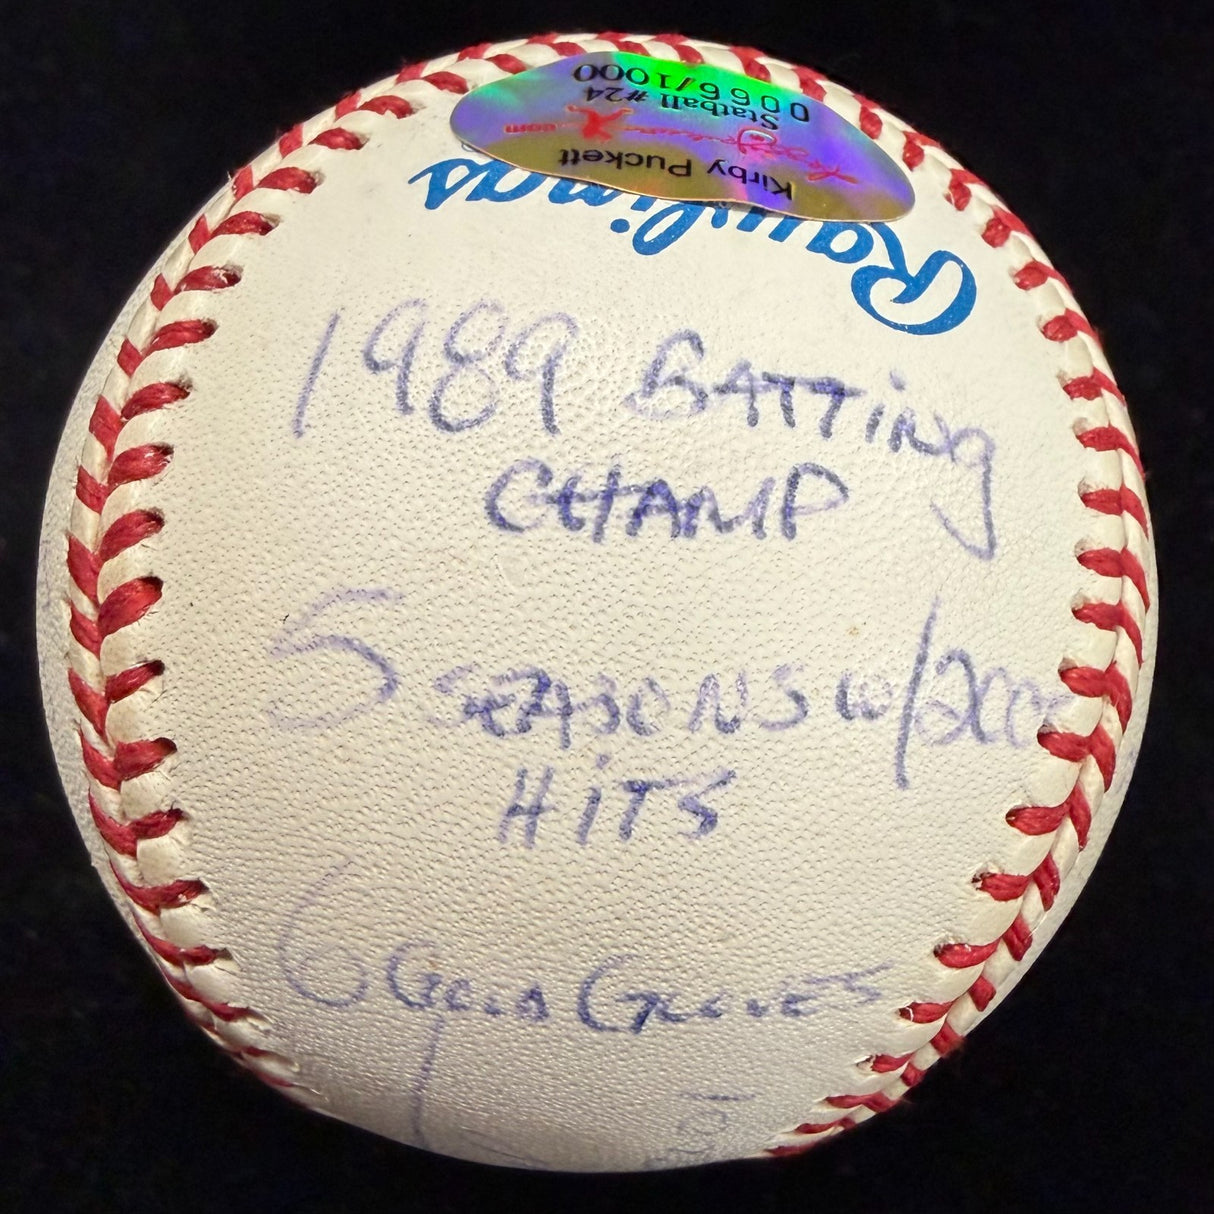 0066/1000
Statball #24
Kirby Puckett
Rawlings
1989 BATTiNg
CHAMP
5 SEASONS w/200
HiTS
6 GOLD GLOVES